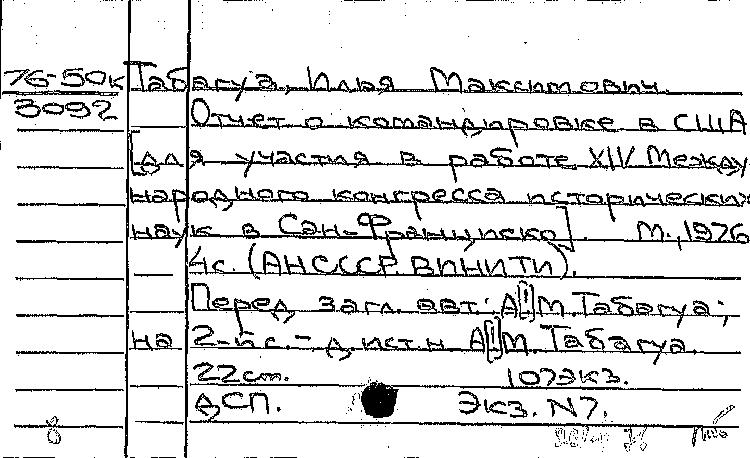 76-50к Табагуа, Илья Максимович.
3092 Отчет о командировке в США
[для участия в работе XIV Между
народного конгресса исторических
наук в Сан-Франциско]. М., 1976
4с. (АН СССР. ВИНИТИ).
Перед загл. авт: А[!]М. Табагуа;
на 2-й с.- д.ист.н А[!]М. Табагуа.
22 см. 107экз.
ДСП. Экз. N7.
8